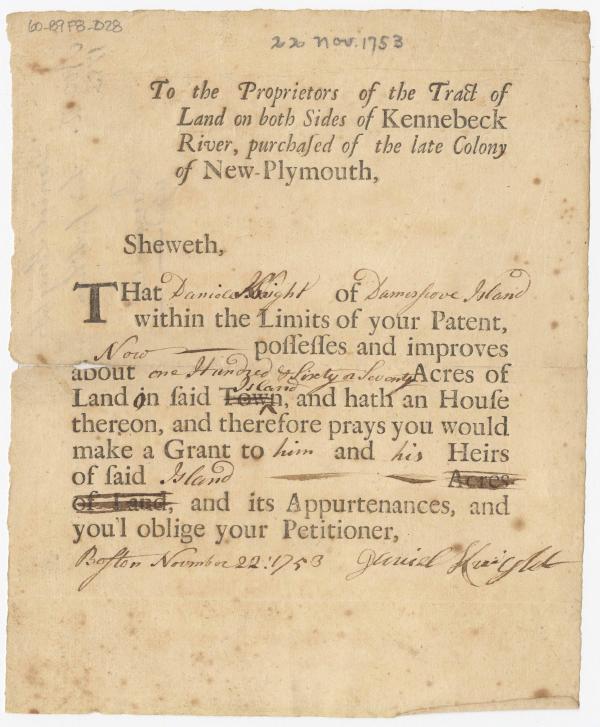 60-B9F8-D28
22 Nov. 1753
To the Proprietors of the Tract of
Land on both Sides of Kennebeck
River, purchaſed of the late Colony
of New-Plymouth,
Sheweth,
THat Daniel Knight of Damerscove Island
within the Limits of your Patent,
Now poſſeſſes and improves
about one Hundred & Sixty or Seventy Acres of
Island
Land in ſaid Town, and hath an Houſe
thereon, and therefore prays you would
make a Grant to him and his Heirs
of ſaid Island Acres
of Land, and its Appurtenances, and
you'l oblige your Petitioner,
Boſton November 22: 1753 Daniel Knight